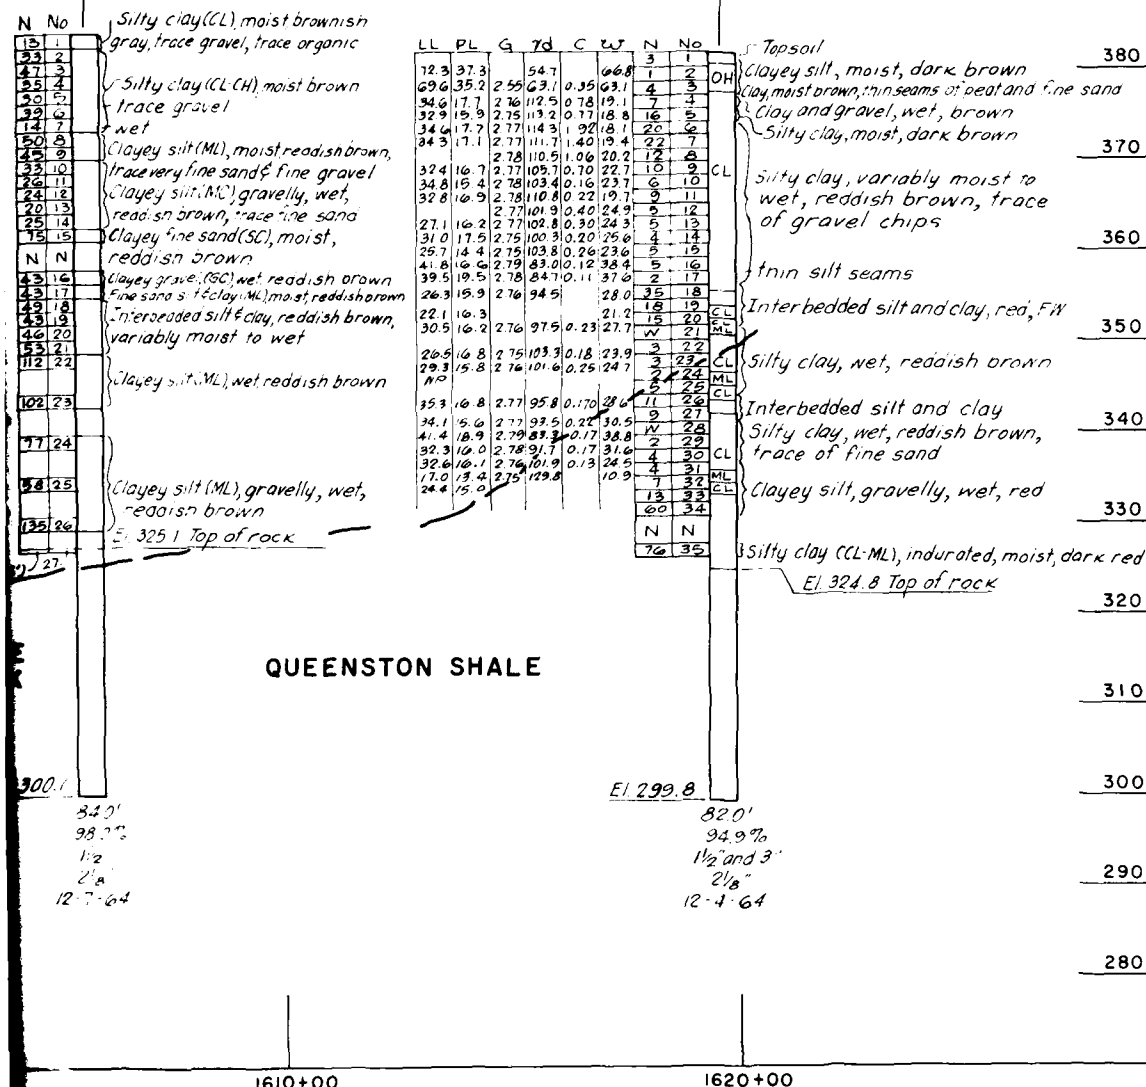 N No
Silty clay (CL), moist brownish
gray, trace gravel, trace organic
13 1
33 2
47 3
35 4
30 5
39 6
14 7
50 8
45 9
33 10
26 11
24 12
20 13
25 14
75 15
N N
43 16
43 17
49 18
43 19
46 20
53 21
112 22
102 23
97 24
58 25
135 26
27
Silty clay (CL-CH), moist brown
trace gravel
wet
Clayey silt (ML), moist reddish brown,
trace very fine sand & fine gravel
Clayey silt gravelly, wet,
reddish brown, trace fine sand
Clayey fine sand (SC), moist,
reddish brown
Clayey gravel (GC) wet reddish brown
Fine sand silt & clay (ML) moist, reddish brown
Interbedded silt & clay, reddish brown,
variably moist to wet
Clayey silt (ML) wet reddish brown
Clayey silt (ML), gravelly, wet,
reddish brown
El 325.1 Top of rock
300.1
84.0'
1 1/2
2 1/8"
12-7-64
LL PL G γd C w N No
3 1
72.3 37.3 54.7 66.8 1 2
69.6 35.2 2.55 63.1 0.35 63.1 4 3
34.6 17.7 2.76 112.5 0.78 19.1 7 4
32.9 15.9 2.75 113.2 0.77 18.8 16 5
34.6 17.7 2.77 114.3 1.92 18.1 20 6
34.3 17.1 2.77 111.7 1.40 19.4 22 7
2.78 110.5 1.06 20.2 12 8
32.4 16.7 2.77 105.7 0.70 22.7 10 9
34.8 15.4 2.78 103.4 0.16 23.7 6 10
32.8 16.9 2.78 110.8 0.22 19.7 9 11
2.77 101.9 0.40 24.9 5 12
27.1 16.2 2.77 102.8 0.30 24.3 5 13
31.0 17.5 2.75 100.3 0.20 25.6 4 14
25.7 14.4 2.75 103.8 0.26 23.6 5 15
41.8 16.6 2.79 83.0 0.12 38.4 5 16
39.5 19.5 2.78 84.7 0.11 37.6 2 17
26.3 15.9 2.76 94.5 28.0 35 18
22.1 16.3 21.2 18 19
30.5 16.2 2.76 97.5 0.23 27.7 15 20
W 21
26.5 16.8 2.75 103.3 0.18 23.9 3 22
29.3 15.8 2.76 101.6 0.25 24.7 3 23
NP 2 24
5 25
35.3 16.8 2.77 95.8 0.170 28.6 11 26
9 27
34.1 15.6 2.77 93.5 0.22 30.5 W 28
41.4 18.9 2.79 83.3 0.17 38.8 2 29
32.3 16.0 2.78 91.7 0.17 31.6 4 30
32.6 16.1 2.76 101.9 0.13 24.5 4 31
17.0 13.4 2.75 129.8 10.9 7 32
24.4 15.0 13 33
60 34
N N
76 35
OH
CL
CL
ML
CL
ML
CL
CL
ML
CL
Topsoil
Clayey silt, moist, dark brown
Clay, moist brown, thin seams of peat and fine sand
Clay and gravel, wet, brown
Silty clay, moist, dark brown
Silty clay, variably moist to
wet, reddish brown, trace
of gravel chips
thin silt seams
Interbedded silt and clay, red, FW
Silty clay, wet, reddish brown
Interbedded silt and clay
Silty clay, wet, reddish brown,
trace of fine sand
Clayey silt, gravelly, wet, red
Silty clay (CL-ML), indurated, moist, dark red
El. 324.8 Top of rock
El. 299.8
82.0'
94.9%
1 1/2" and 3"
2 1/8"
12-4-64
QUEENSTON SHALE
380
370
360
350
340
330
320
310
300
290
280
1610+00
1620+00